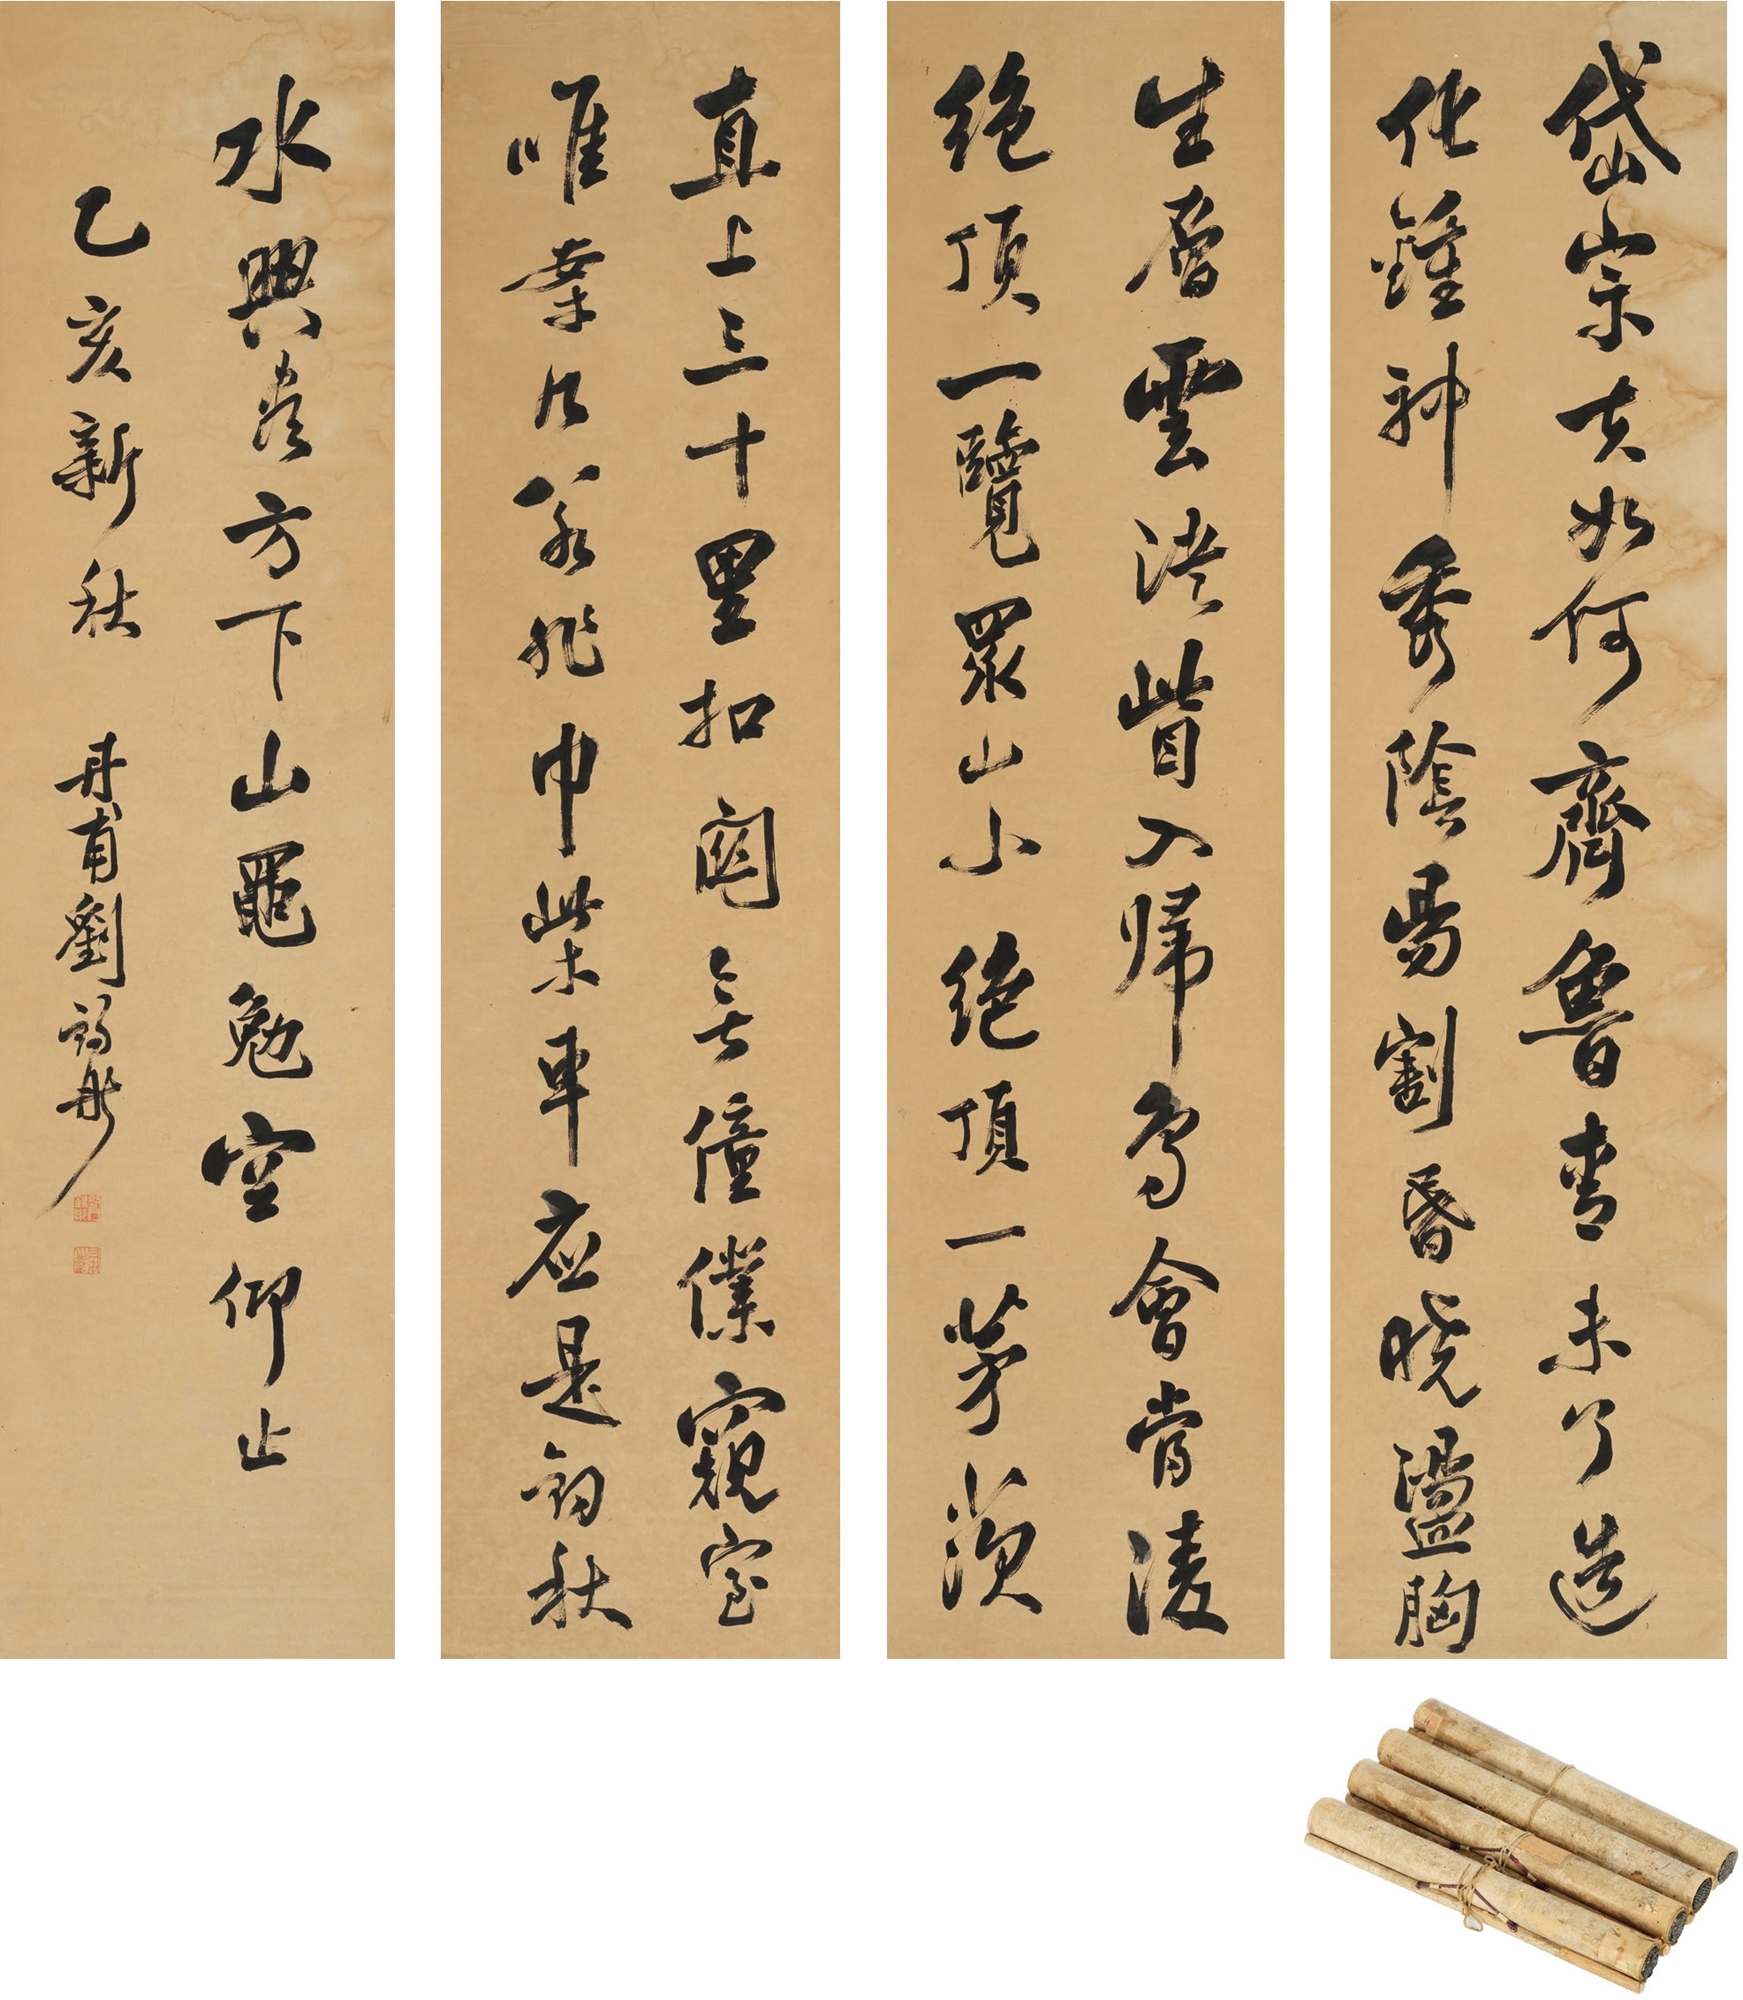 岱宗夫如何齊魯青未了造
化鍾神秀陰易割昏曉盪胸
生層雲決眥入归鳥會當凌
絕頂一覽眾山小絕頂一茅茨
直上三十里扣関无僮僕窺室
唯案几若非巾柴車应是钓秋
水興尽方下山黽勉空仰止
乙亥新秋 丹甫劉錫彤